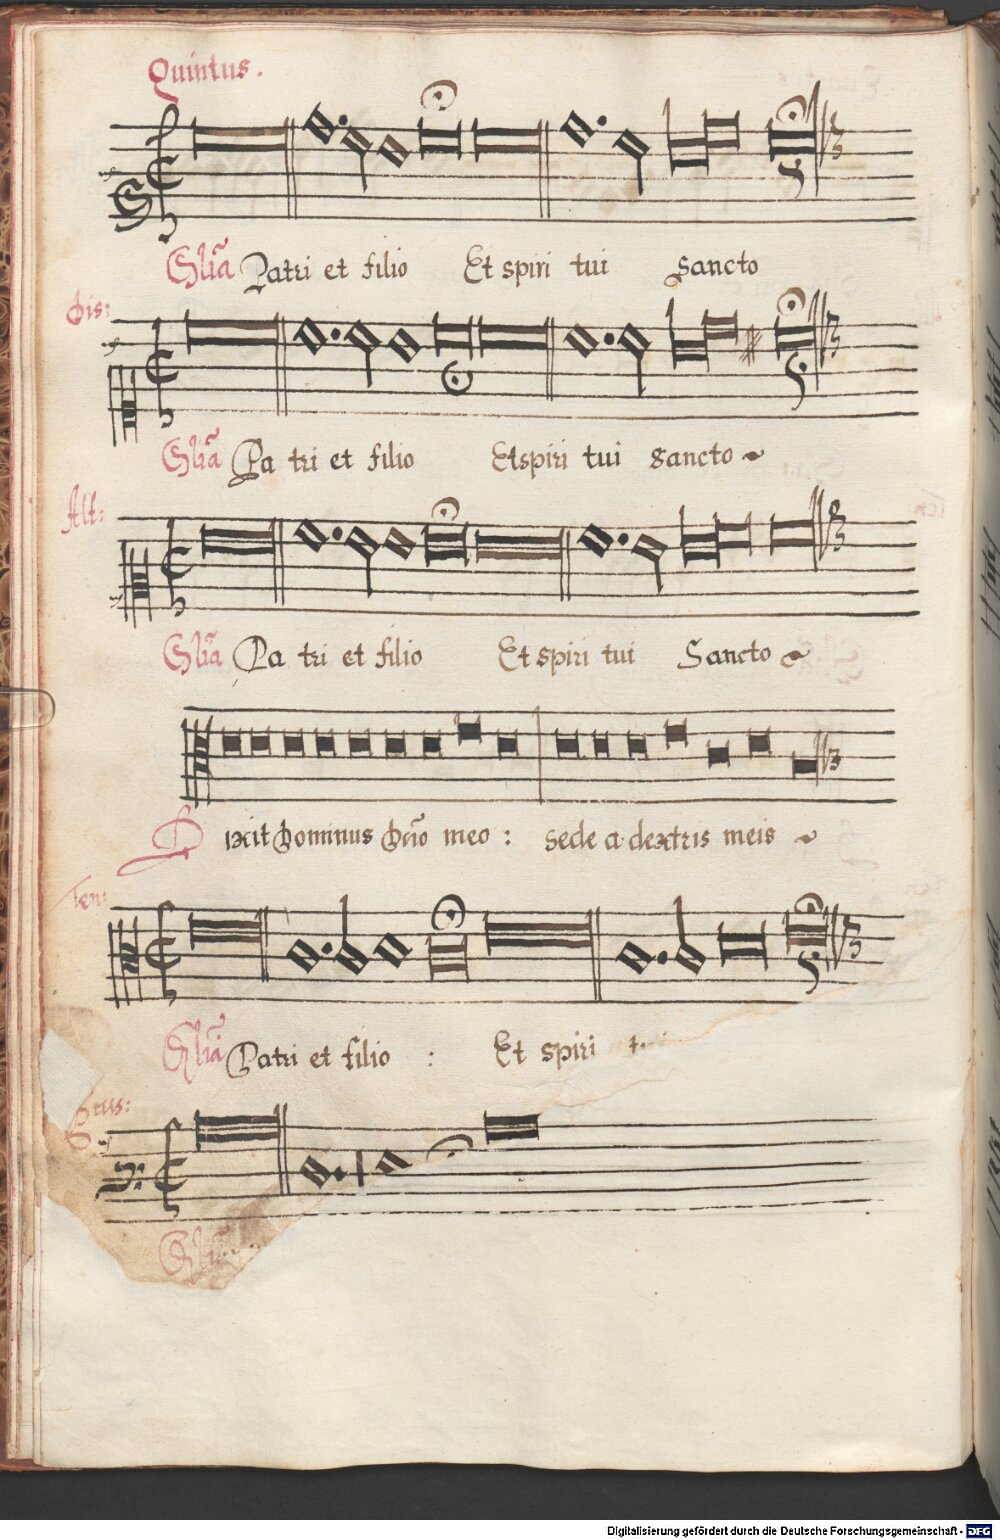 Quintus.
Glia Patri et filio Et spiri tui Sancto
Dis:
Glia Pa tri et filio Et spiri tui Sancto
Alt:
Glia Pa tri et filio Et spiri tui Sancto
Dixit Dominus Dno meo : sede a dextris meis
Ten:
Glia Patri et filio : Et spiri
Digitalisierung gefördert durch die Deutsche Forschungsgemeinschaft - DFG